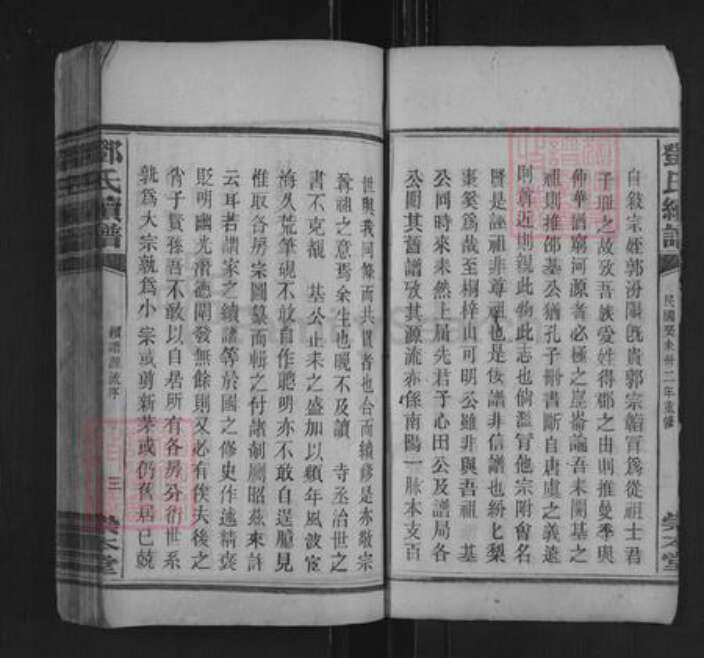 鄧氏續譜
民國癸未卅二年重修
榮本堂
自敍宗姪郭汾陽旣貴郭宗韜百爲從祖士君
子恥之故攷吾族受姓得鄧之由則推曼季與
仲華猶窮河源者必極之崑崙論吾來閩基之
祖則推邵基公猶孔子刪書斷自唐虞之義遠
則尊近則親此物此志也倘濫冒他宗附會名
賢是誣祖非尊祖也是佞譜非信譜也紛匕梨
棗奚爲哉至桐梓山可明公雖非與吾祖 基
公同時來未然上屆先君子心田公及譜局各
公閱其舊譜攷其源流亦係南陽一脉本支百
世與我同條而共貫者也合而續修是亦敬宗
尊祖之意焉余生也晚不及讀 寺丞洽世之
書不克覩 基公止未之盛加以頻年風波宦
海久荒筆硯不敢自作聰明亦不敢自逞臆見
惟取各房宗圖纂而輯之付諸剞劂昭茲來許
云耳若謂家之續譜等於國之修史作述精褒
貶明幽光潛德闡發無餘則又必有俟夫後之
肖子賢孫吾不敢以自居所有各房分衍世系
孰爲大宗孰爲小宗或剪新茅或仍舊居已兢
鄧氏續譜
續譜源流序
三
榮本堂
FamilySearch